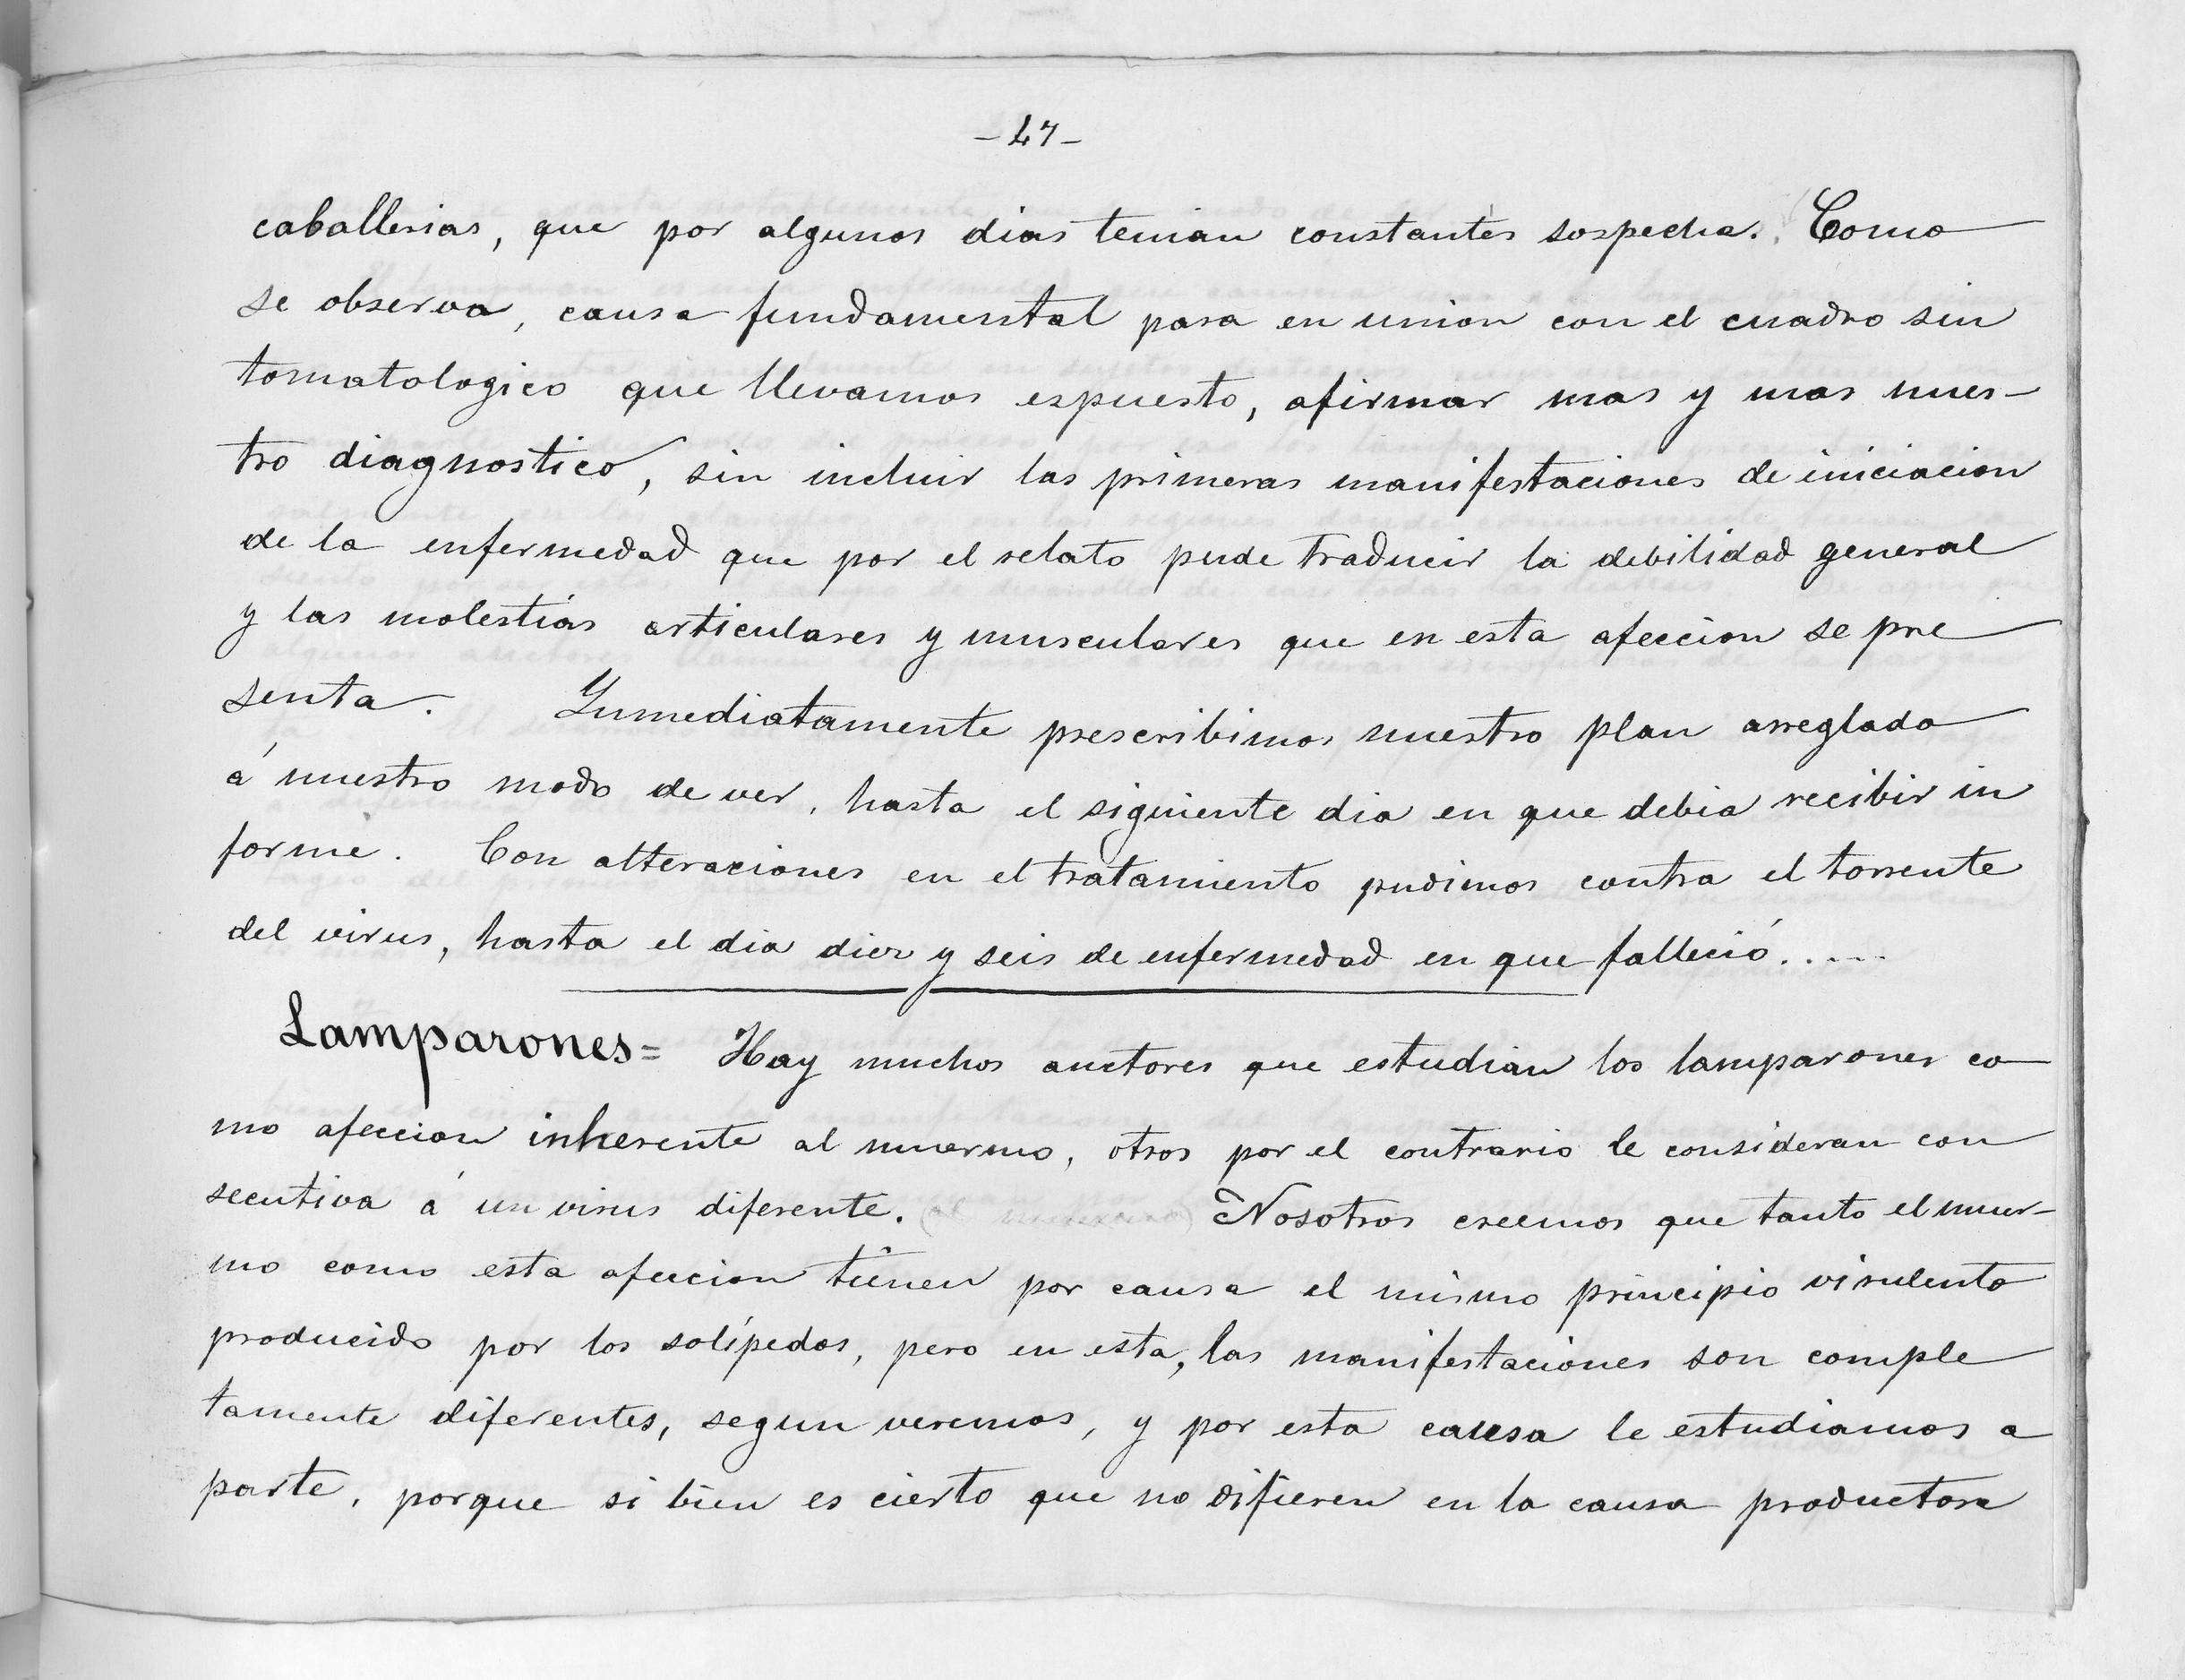 -47-
caballerias, que por algunos dias tenian constantes sospecha. Como
se observa, causa fundamental para en union con el cuadro sin
tomatologico que llevamos espuesto, afirmar mas y mas nues-
tro diagnostico, sin incluir las primeras manifestaciones de iniciacion
de la enfermedad que por el relato pude traducir la debilidad general
y las molestias articulares y musculares que en esta afeccion se pre
senta. Inmediatamente prescribimos nuestro plan arreglado
á nuestro modo de ver, hasta el siguiente dia en que debia recibir in
forme. Con alteraciones en el tratamiento pudimos contra el torrente
del virus, hasta el dia diez y seis de enfermedad en que falleció.....
Lamparones= Hay muchos auctores que estudian los lamparones co
mo afeccion inherente al muermo, otros por el contrario le consideran con
secutiva á un virus diferente. Nosotros creemos que tanto el muer-
mo como esta afeccion tienen por causa el mismo principio virulento
producido por los solípedos, pero en esta, las manifestaciones son comple
tamente diferentes, segun veremos, y por esta causa le estudiamos a
parte, porque si bien es cierto que no difieren en la causa productora